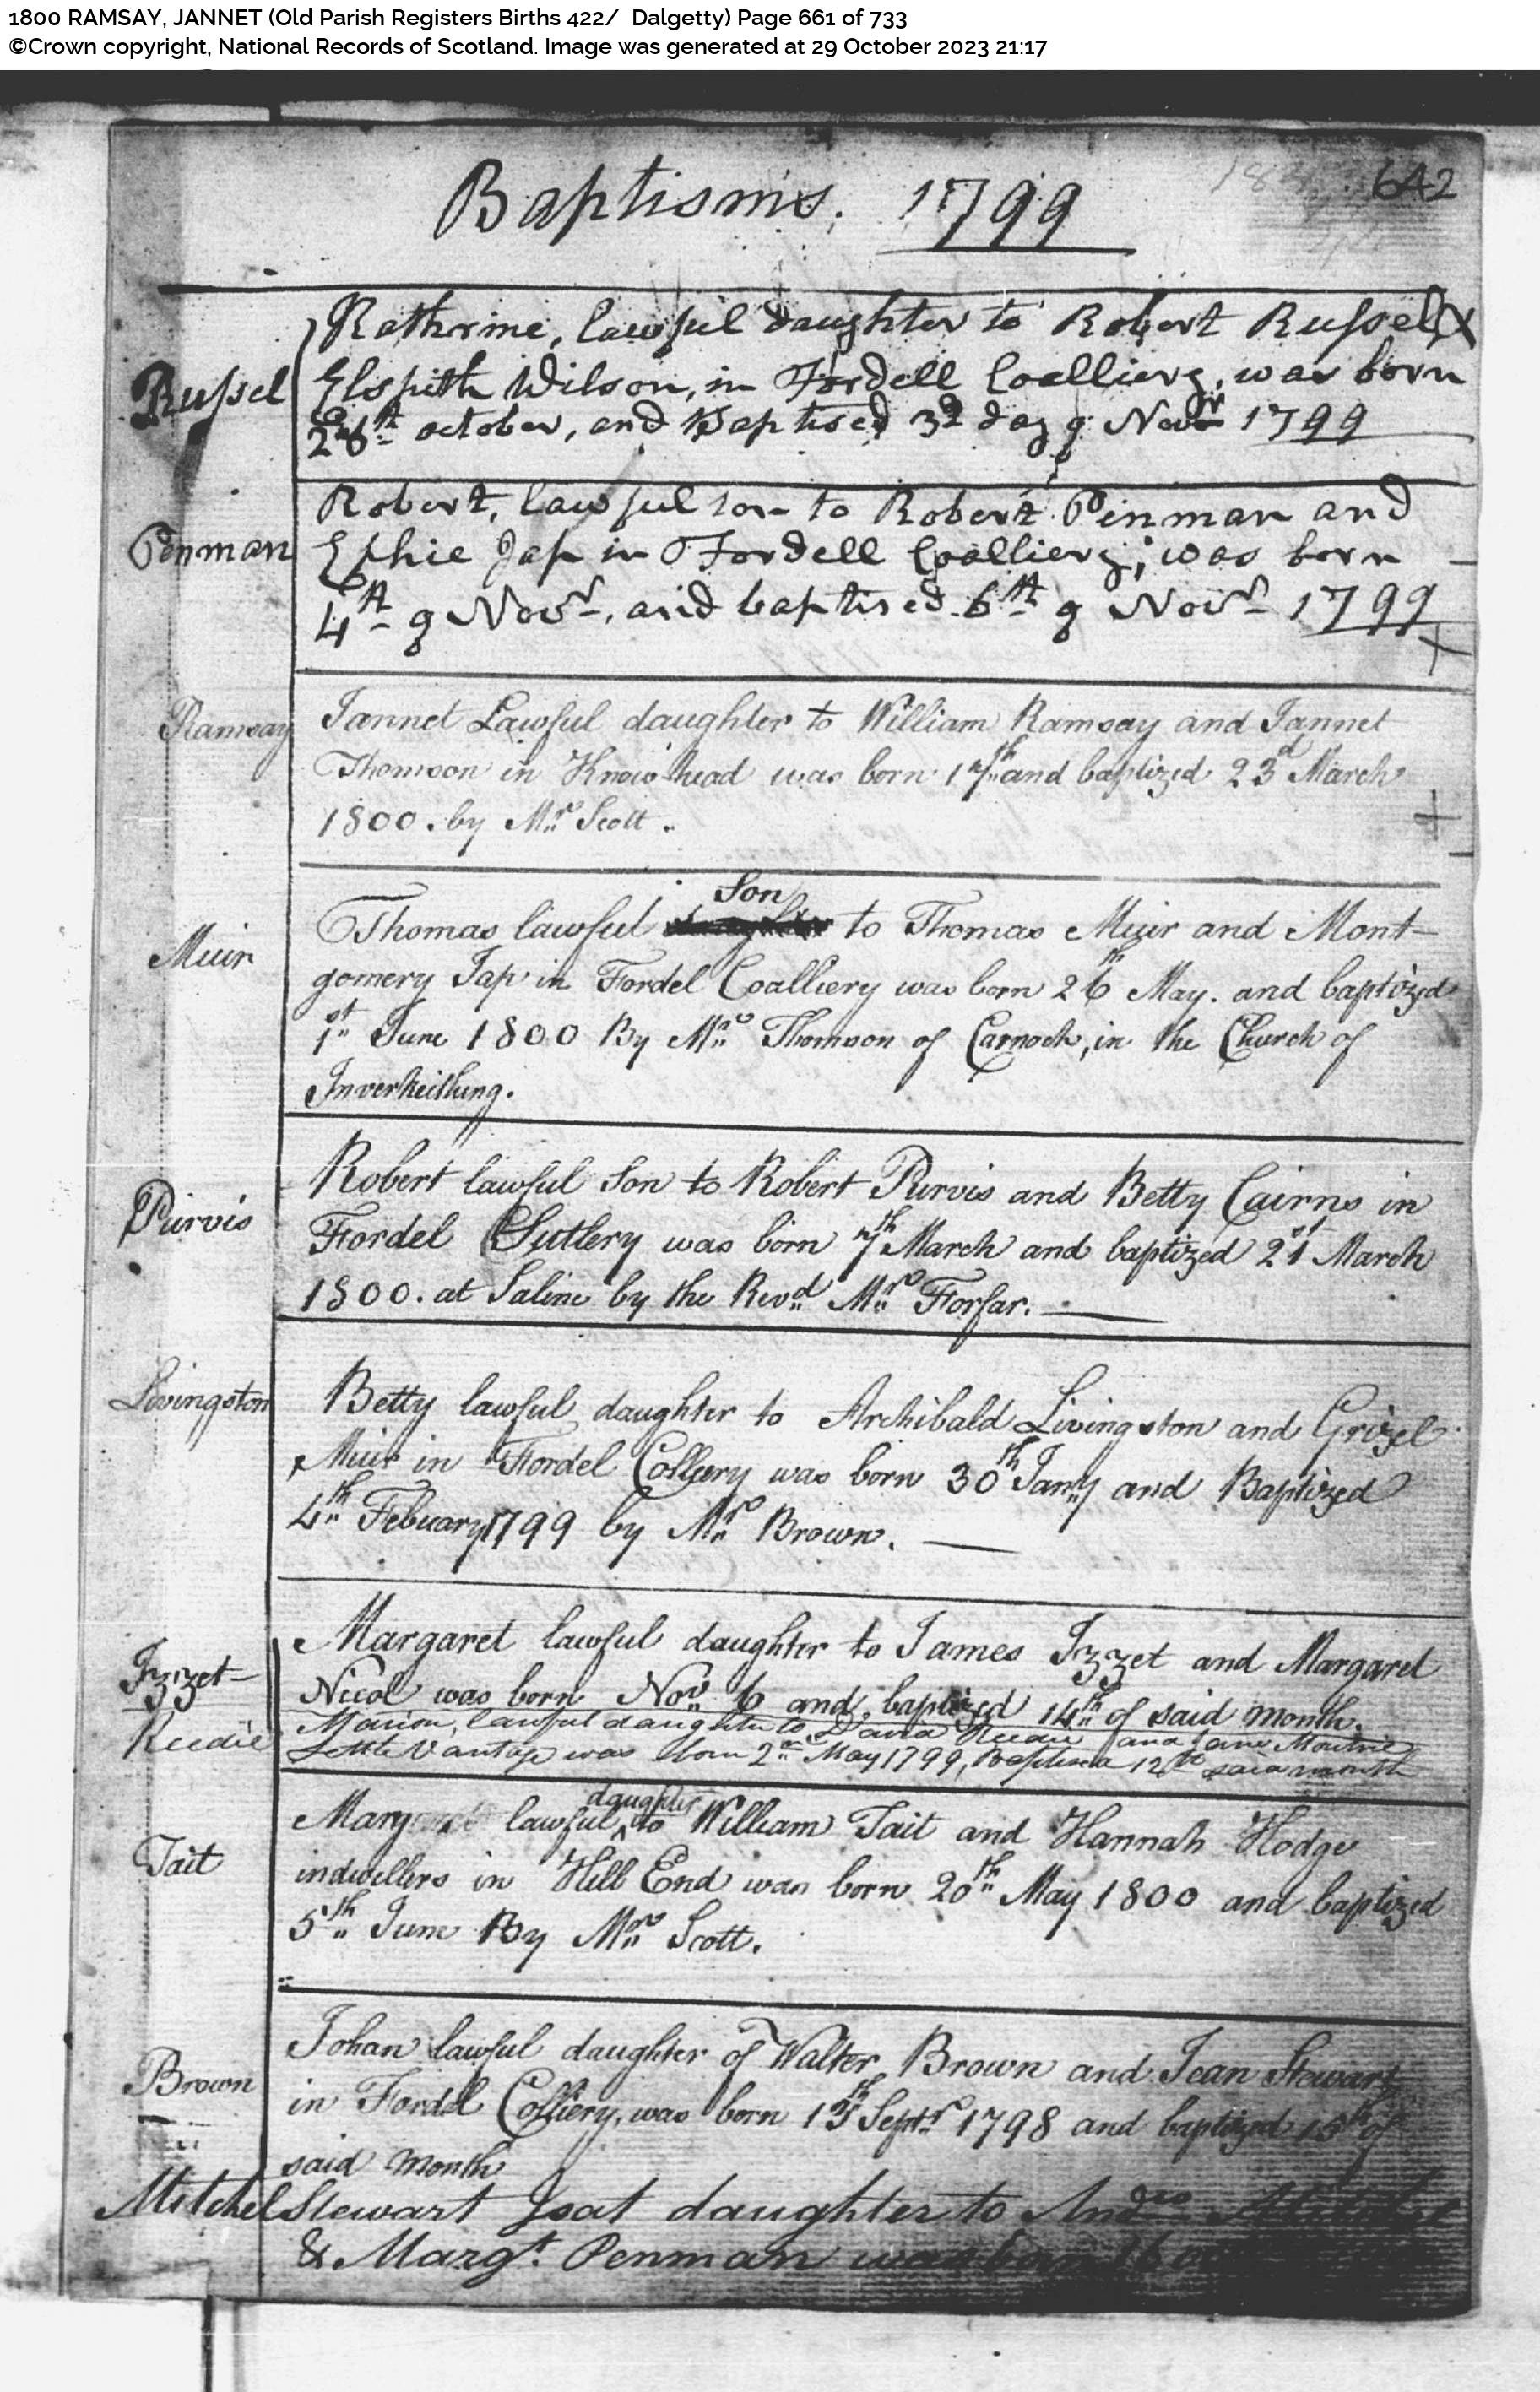 1800 RAMSAY, JANNET (Old Parish Registers Births 422/ Dalgetty) Page 661 of 733
©Crown copyright, National Records of Scotland. Image was generated at 29 October 2023 21:17
642
Baptisms. 1799
Kathrine, lawful daughter to Robert Russel &
Russel
Elspith Wilson, in Fordell Coalliery, was born
28th october, and Baptised 3d day of Novr 1799
Robert, lawful son to Robert Penman and
Penman
Ephie Jap in Fordell Coalliery, was born
4th of Novr, and baptised 6th of Novr 1799
Ramsay
Jannet Lawful daughter to William Ramsay and Jannet
Thomson in Know head was born 17th and baptized 23d March
1800. by Mr Scott.
Son
Thomas lawful daughter to Thomas Muir and Mont-
Muir
gomery Jap in Fordel Coalliery was born 26th May. and baptized
1st June 1800 By Mr Thomson of Carnock, in the Church of
Inverkeithing.
Robert lawful Son to Robert Purvis and Betty Cairns in
Purvis
Fordel Sutlery was born 7th March and baptized 21st March
1800. at Saline by the Revd Mr Forfar.
Livingston
Betty lawful daughter to Archibald Livingston and Grizel
Muir in Fordel Colliery was born 30th Jany and Baptized
4th Febuary 1799 by Mr Brown.
Margaret lawful daughter to James Izzet and Margaret
Izzet
Nicol was born Novr 6 and baptized 14th of said month.
Reedie
Marion, lawful daughter to David Reedie and Jane Moutrie
Little Vantage was born 2nd May 1799, Baptised 12th said month
daughter
Margaret lawful to William Tait and Hannah Hodge
Tait
indwellers in Hill End was born 20th May 1800 and baptized
5th June By Mr Scott.
Johan lawful daughter of Walter Brown and Jean Stewart
Brown
in Fordel Colliery, was born 13th Septr 1798 and baptized 15th of
said month
Mitchel
Stewart Joat daughter to Andw Mitchel
& Margt. Penman was born